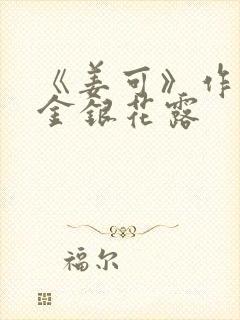 《姜可》作
金银花露
福尔